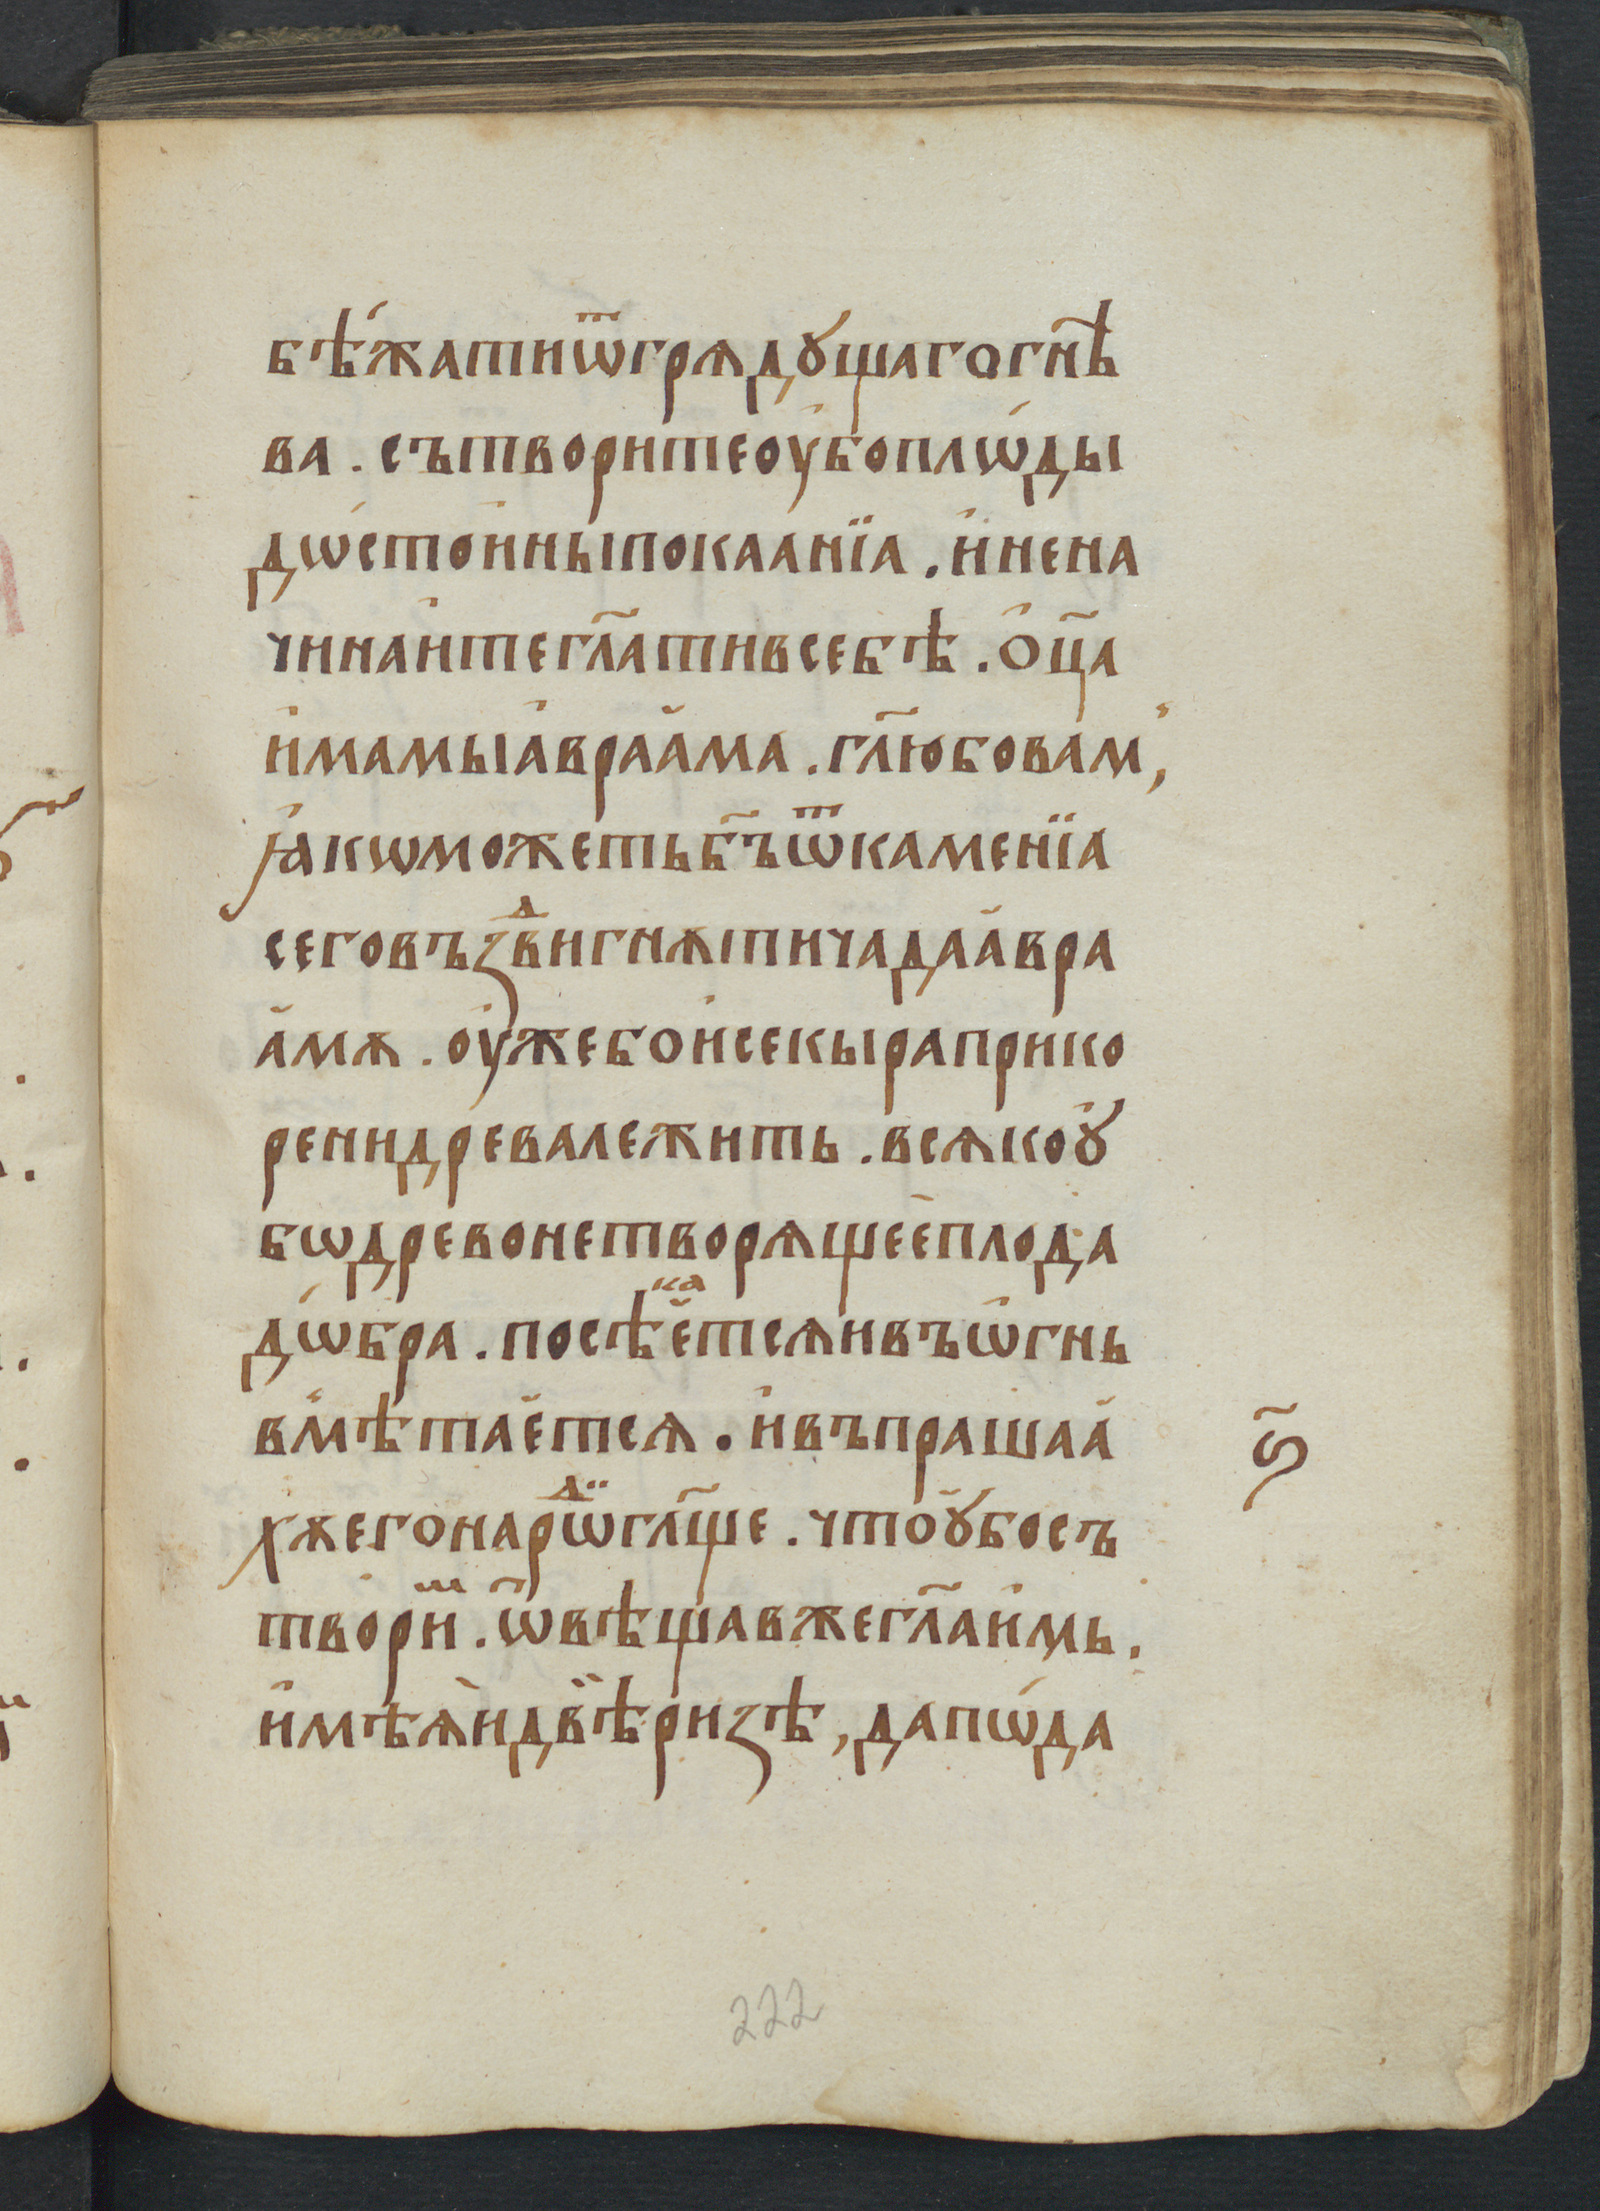 бѣ́жатиѿгрѧдꙋщагогнѣ̑
ва . сътворитеоу҆боплѡ́ды
дѡ́сто́и҆ныпокаанїа . и҆нена
чинаи҆тегл҃ативсебѣ . ѻ҆ц҃а
и҆мамыа҆враа҆ма . гл҃юбовам̾,
ꙗ҆кѡможетьбг҃ъѿкаменїа
сеговъздⷣвигнѫтичадаа҆вра
а҆мѫ . оу҆жебои҆секыраприко
ренидревалежить . всѧкоу҆
бѡдревонетворѧщеепло́да
дѡ́бра . посѣкаⷦ҇е҆тсѧивъѡ҆гнь
вмѣтае҆тсѧ . и҆въпрашаа҆
хѫегонарѡⷣ҇ гл҃ще . чтоꙋ҆босъ
твориⷨ . ѿвѣщавжегл҃аи҆мь .
и҆мѣѧ҆идвѣ̈ризѣ , дапѡ́да
ѕ҃
222